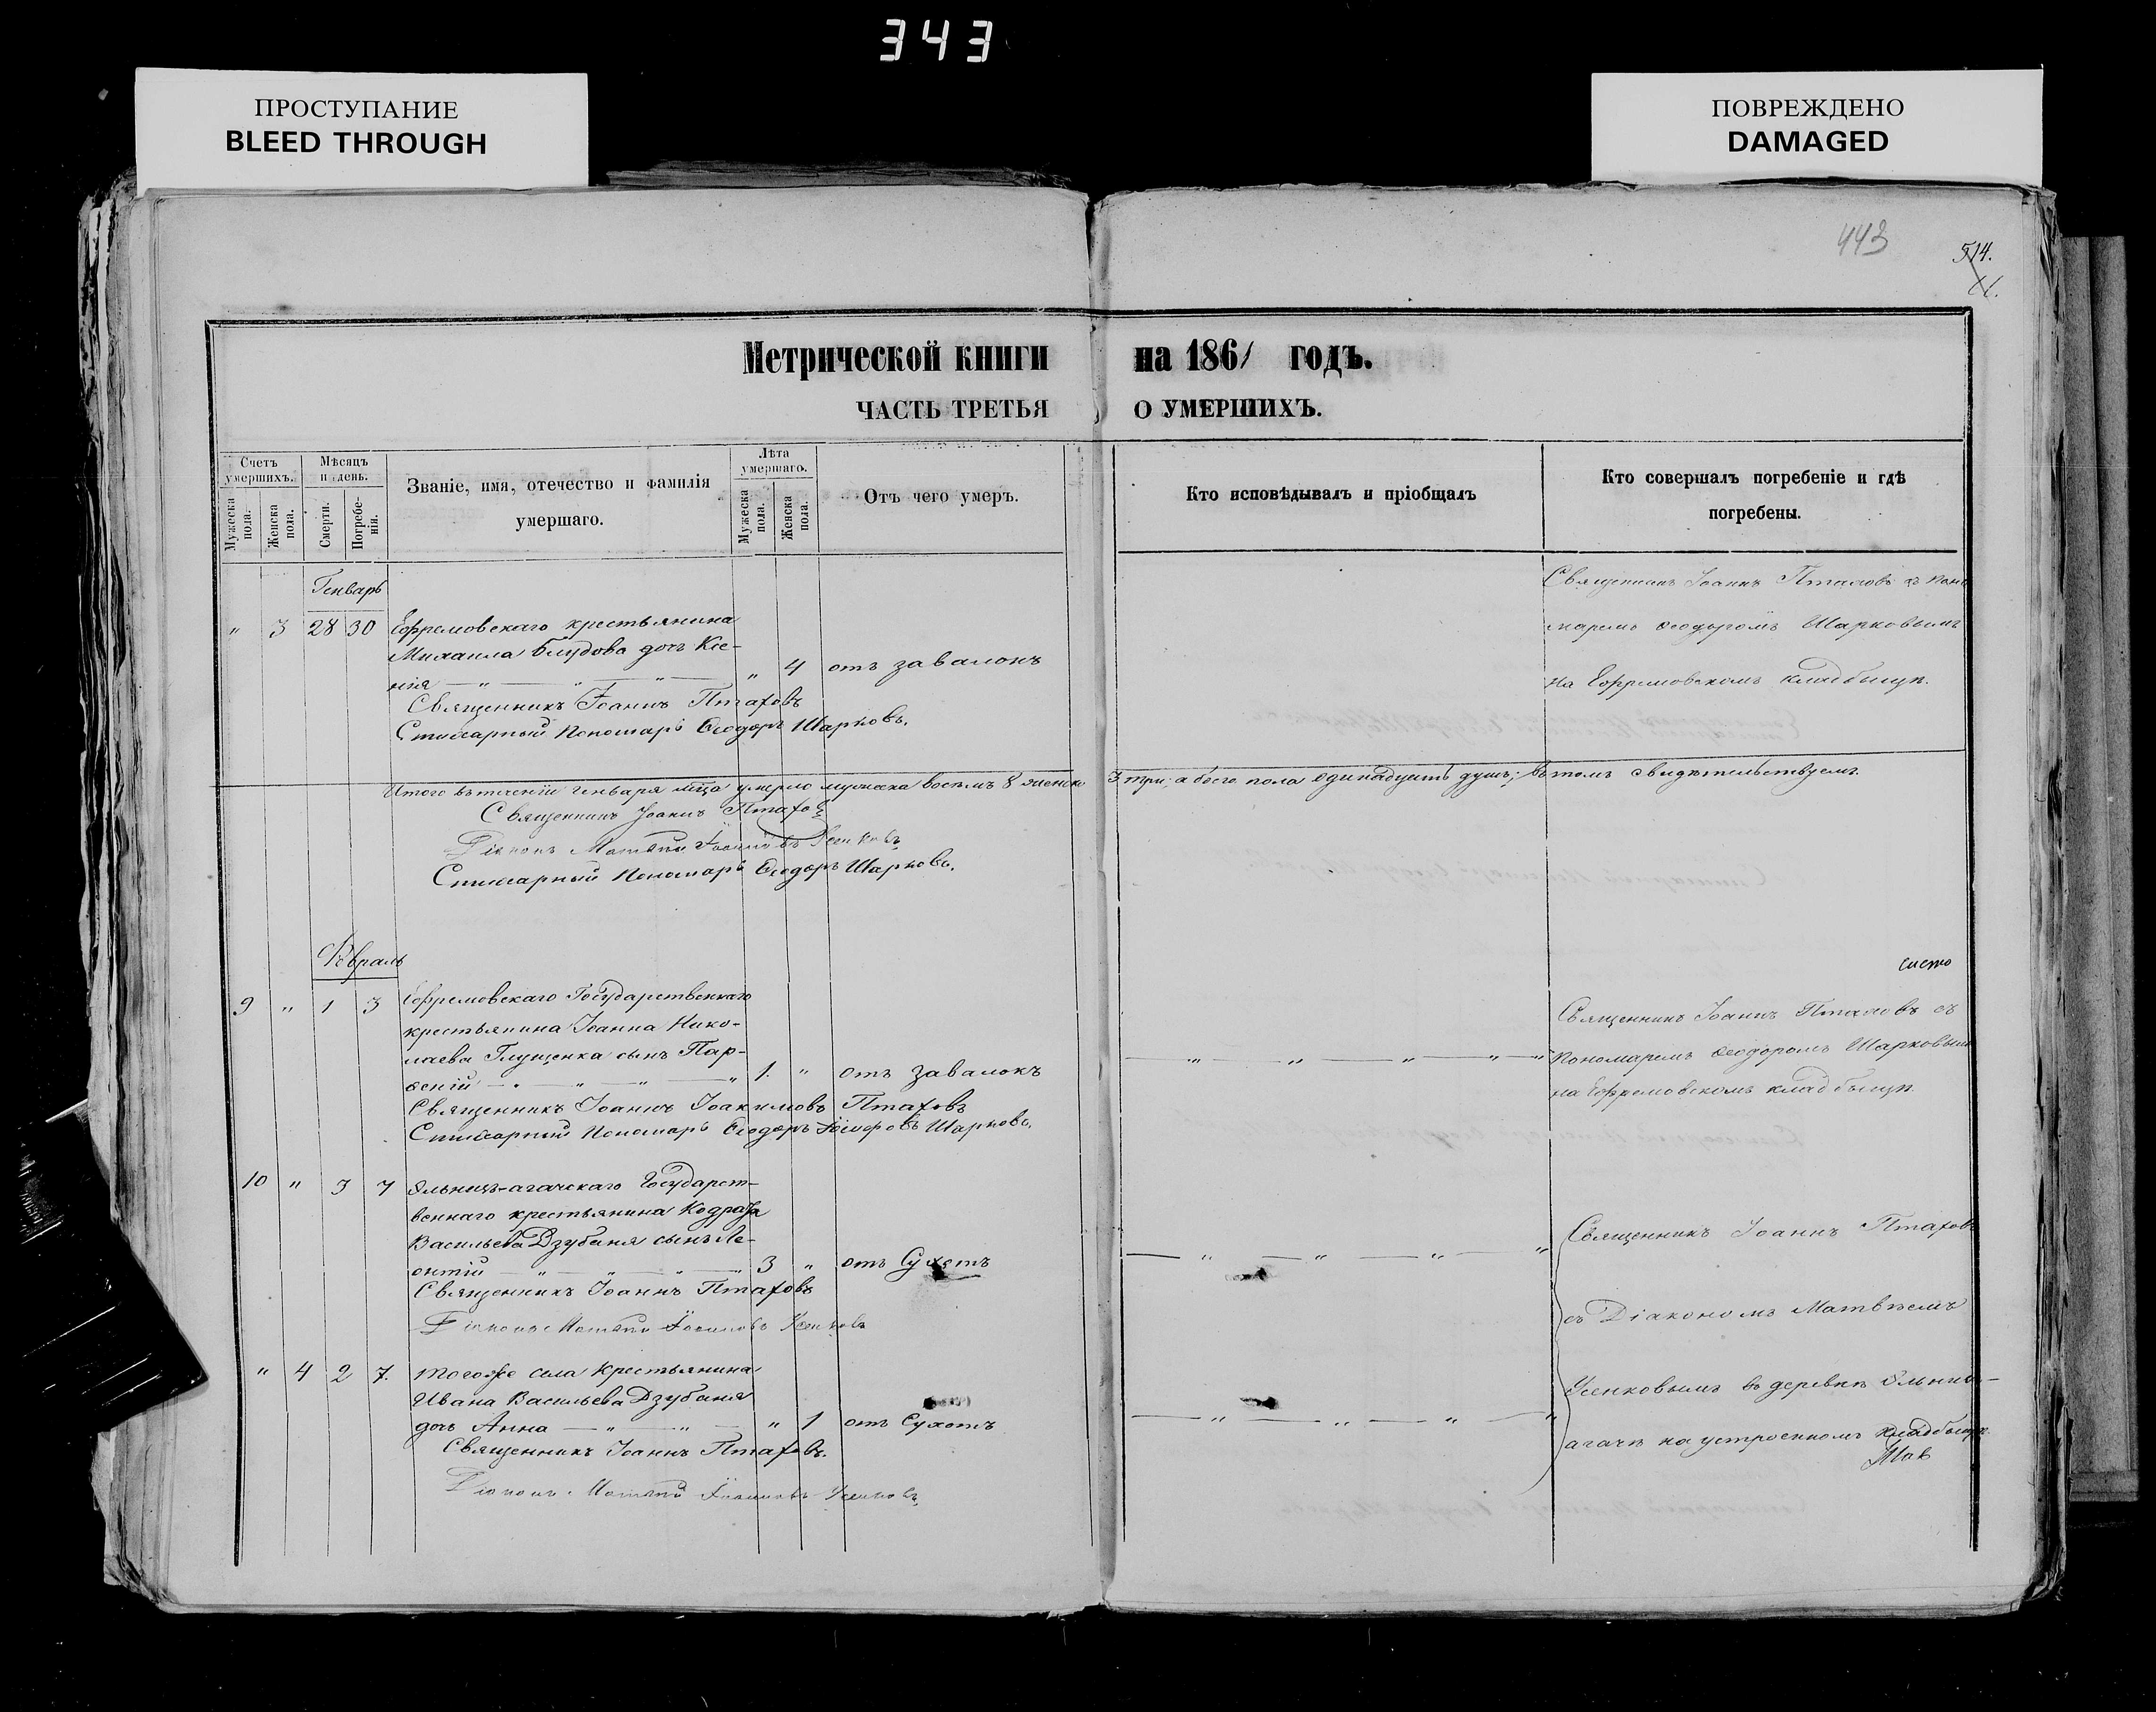 343
ПРОСТУПАНИЕ
BLEED THROUGH
ПОВРЕЖДЕНО
DAMAGED
443
514.
Метрической книги на 1861 годъ.
ЧАСТЬ ТРЕТЬЯ О УМЕРШИХЪ.
Счетъ умершихъ.
Мужеска пола.
Женска пола.
Мѣсяцъ и день.
Смерти.
Погребенія.
Званіе, имя, отечество и фамилія
умершаго.
Лѣта умершаго.
Мужеска пола.
Женска пола.
Отъ чего умеръ.
Кто исповѣдывалъ и пріобщалъ
Кто совершалъ погребеніе и гдѣ
погребены.
Генварь
" 3 28 30 Ефремовскаго крестьянина
Михаила Блудова дочь Ксе-
нія " 4 отъ завалокъ
Священникъ Іоаннъ Птаховъ
Стихарный Пономарь Ѳеодоръ Шарковъ.
Священникъ Іоаннъ Птаховъ съ Поно
маремъ Ѳеодоромъ Шарковымъ
на Ефремовскомъ кладбищѣ.
Итого въ теченіи Генваря м͠ца умерло мужеска восемь 8 женска 3 три, а обоего пола одинадцать душъ; въ томъ свидѣтельствуемъ.
Священникъ Іоаннъ Птаховъ
Діаконъ Матвѣй Усенковъ
Стихарный Пономарь Ѳеодоръ Шарковъ.
Февраль
9 " 1 3 Ефремовскаго Государственнаго
крестьянина Іоанна Нико-
лаева Глущенка сынъ Пар-
ѳеній 1. " отъ завалокъ
Священникъ Іоаннъ Іоакимовъ Птаховъ
Стихарный Пономарь Ѳеодоръ Шарковъ.
Священникъ Іоаннъ Птаховъ съ
Пономаремъ Ѳеодоромъ Шарковымъ
на Ефремовскомъ кладбищѣ.
10 " 3 7 Государст-
веннаго крестьянина Кодрата
Васильева Дзубаня сынъ Ле-
онтій 3 " отъ Сухотъ
Священникъ Іоаннъ Птаховъ
Діаконъ Матвѣй Усенковъ
" 4 2 7. тогоже села крестьянина
Ивана Васильева Дзубаня
дочь Анна " 1 отъ Сухотъ
Священникъ Іоаннъ Птаховъ.
Діаконъ Матвѣй Усенковъ
Священникъ Іоаннъ Птаховъ
съ Діакономъ Матвѣемъ
Усенковымъ въ деревнѣ
агачѣ на устроенномъ кладбищѣ.